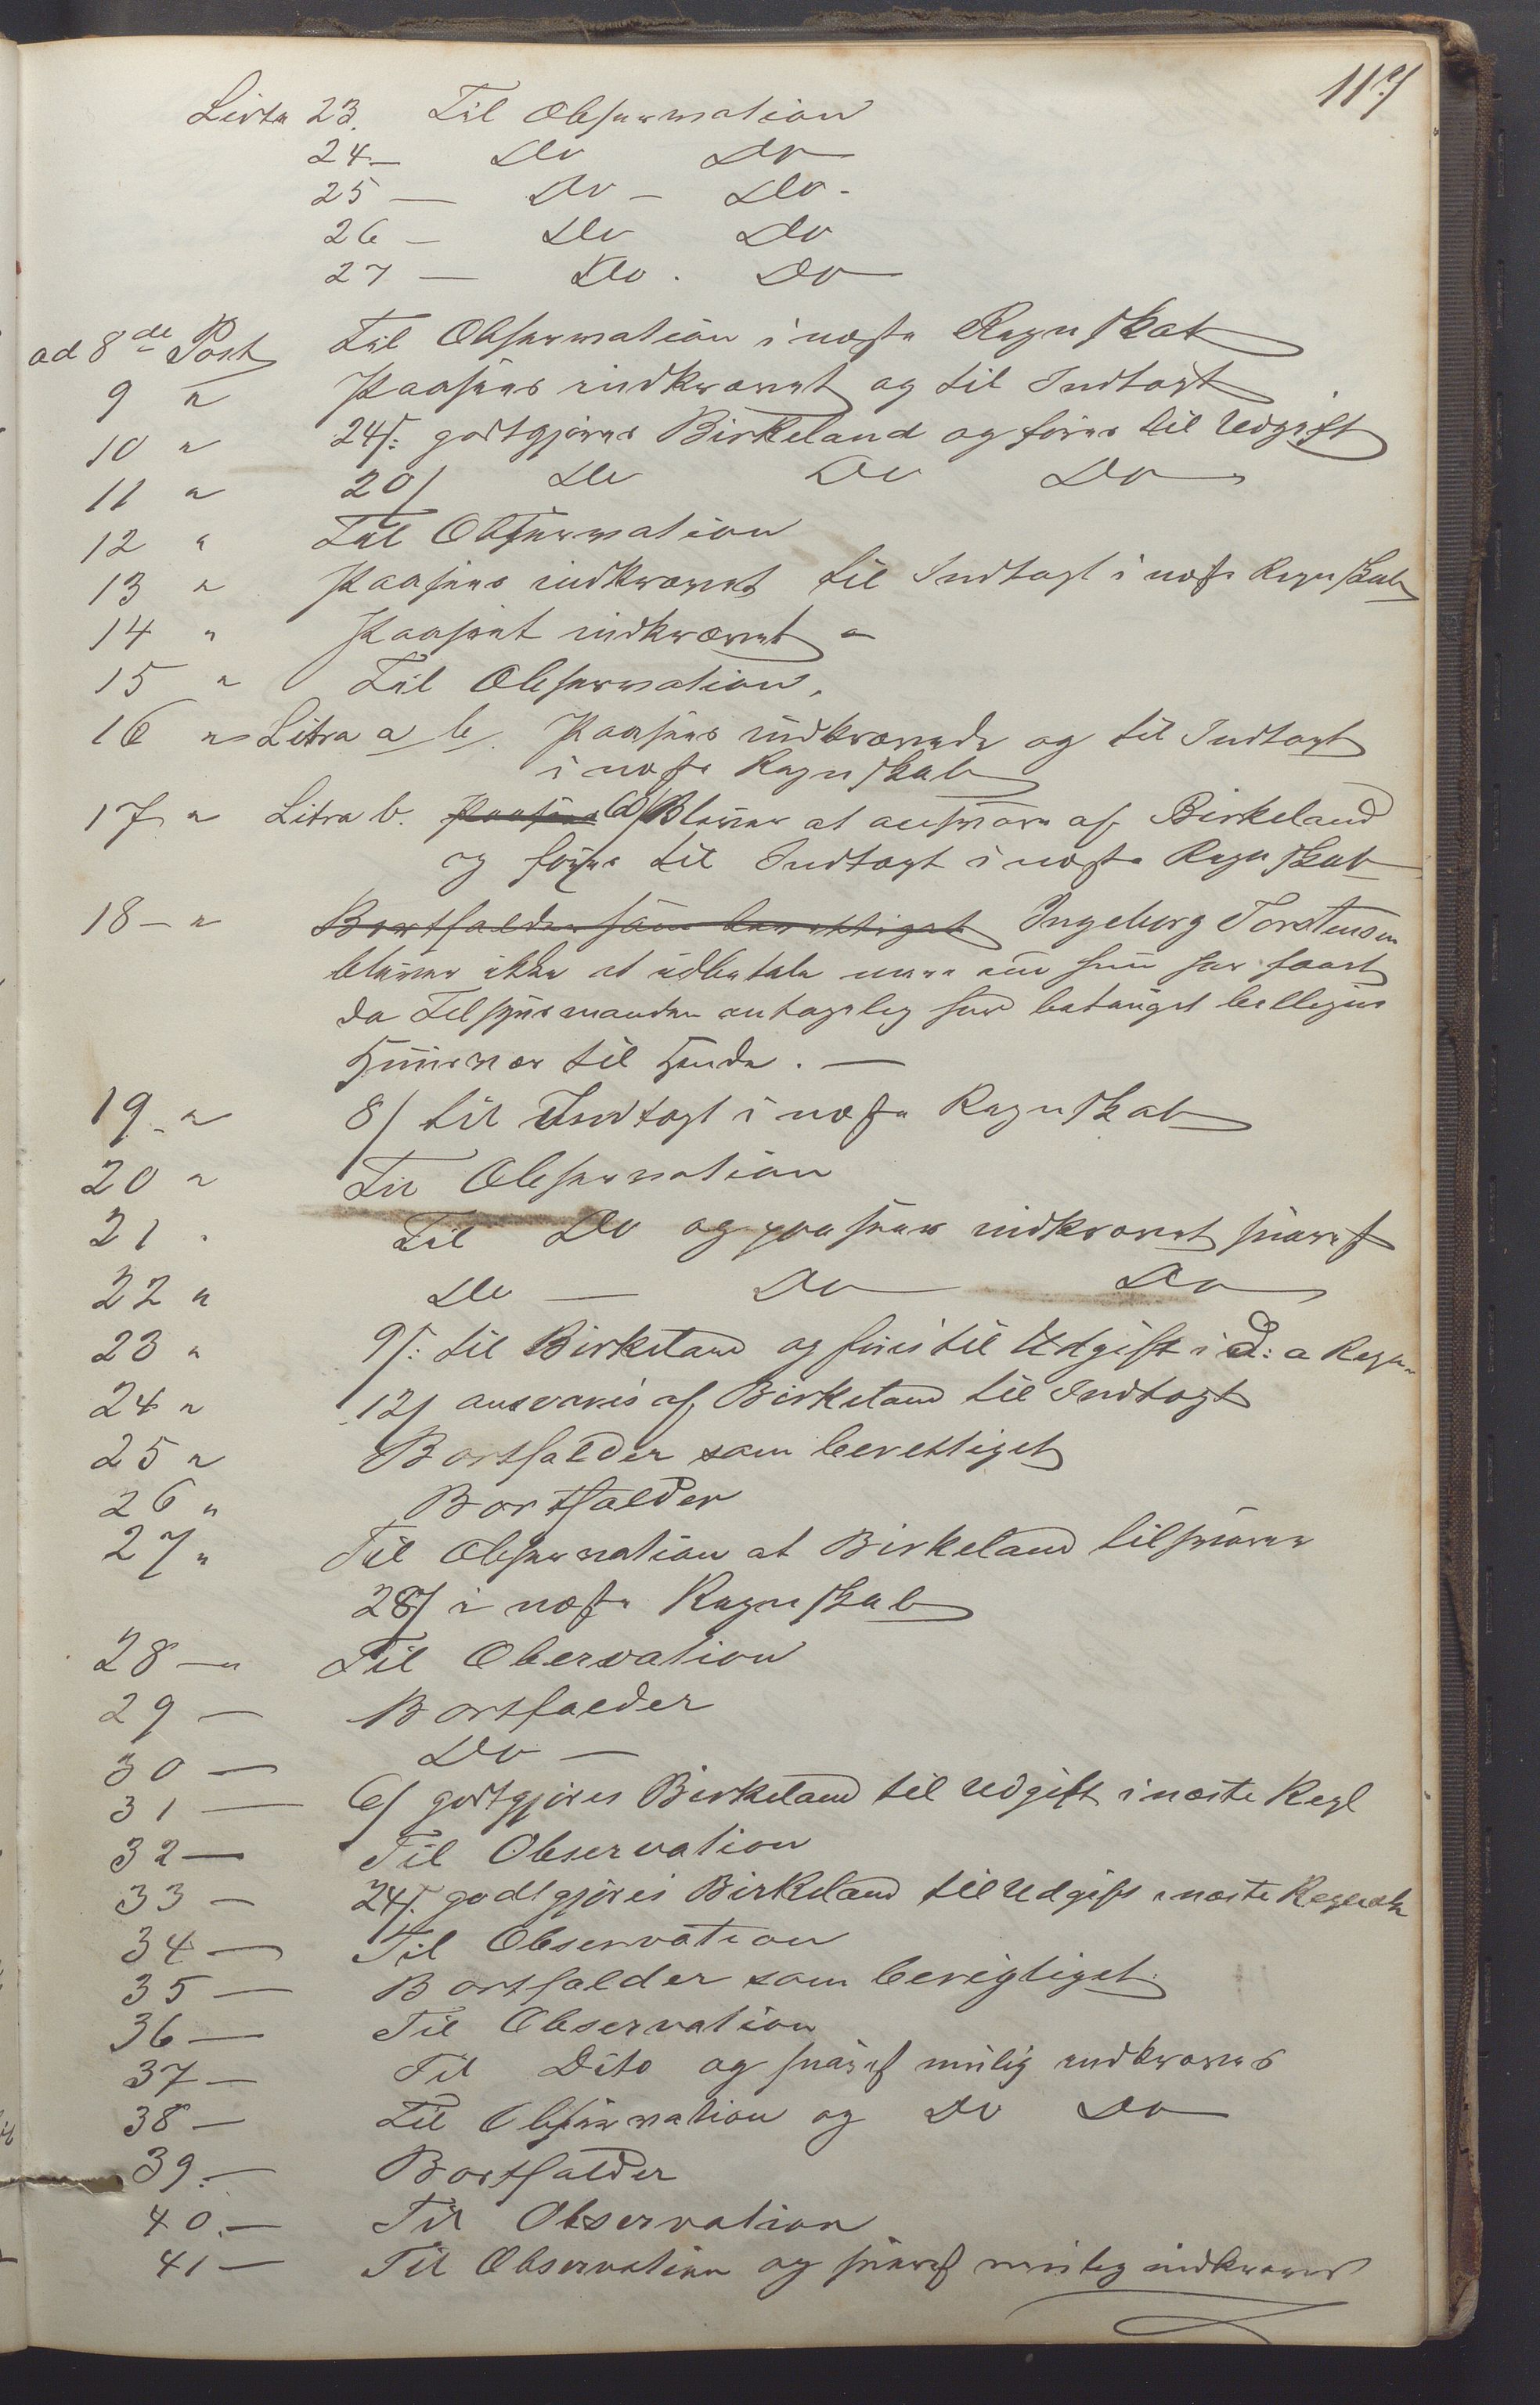 117
Litra 23. Til Observation
24 — Do Do
25 — Do — Do -
26 — Do Do
27 — Do . Do
ad 8de Post Til Observation i næste Regnskab
9 " Paasees indkrævet og til Indtægt
10 " 24/: godtgjøres Birkeland og føres til Udgift
11 " 20/ Do Do Do
12 " Til Observation
13 " Paasees indkrævet til Indtægt i næste Regnskab
14 " Paaseet indkrævet "
15 " Til Observation.
16 " Litra a b. Paasees indkrævede og til Indtægt
i næste Regnskab
17 " Litra b. Paasees Bliver at ansvare af Birkeland
og føres til Indtægt i næste Regnskab
18 — " Bortfalder som berettiget Ingeborg Torstensen
bliver ikke at udbetale mere end hun har faaet
da Tilsynsmanden antagelig har betinget
til hende. —
19 - " 8/ til Indtægt i næste Regnskab
20 " Til Observation
21 . Til Do og paasees indkrævet snarest
22 " Do — Do — Do
23 " 9/: til Birkeland og føres til Udgift i
24 " 12/ ansvares af Birkeland til Indtægt
25 " Bortfalder som berettiget
26 " Bortfalder
27 " Til Observation at Birkeland tilsvarer
28/ i næste Regnskab
28 — " Til Obervation
29 — Bortfalder
30 — Do —
31 — 6/ godtgjøres Birkeland til Udgift i næste Regl
32 — Til Observation
33 — 24/: godtgjøres Birkeland til Udgift i næste Regnsk
34 — Til Observation
35 — Bortfalder som berigtiget.
36 — Til Observation
37 — Til Dito og snarest mulig indkræves
38 — Til Observation og Do Do
39. — Bortfalder
40. — Til Observation
41 — Til Observation og snarest mulig indkræves